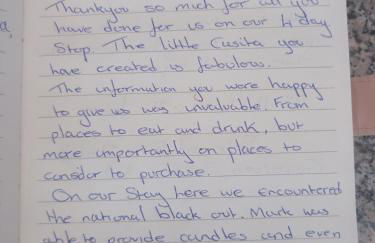 Thankyou so much for all you
have done for us on our 4 day
Stop. The little Cusita you
have created is fabulous.
The information you were happy
to give us was invaluable. From
places to eat and drink, but
more importantly on places to
consider to purchase.
On our Stay here we encountered
the national black out. Mark was
able to provide candles and even